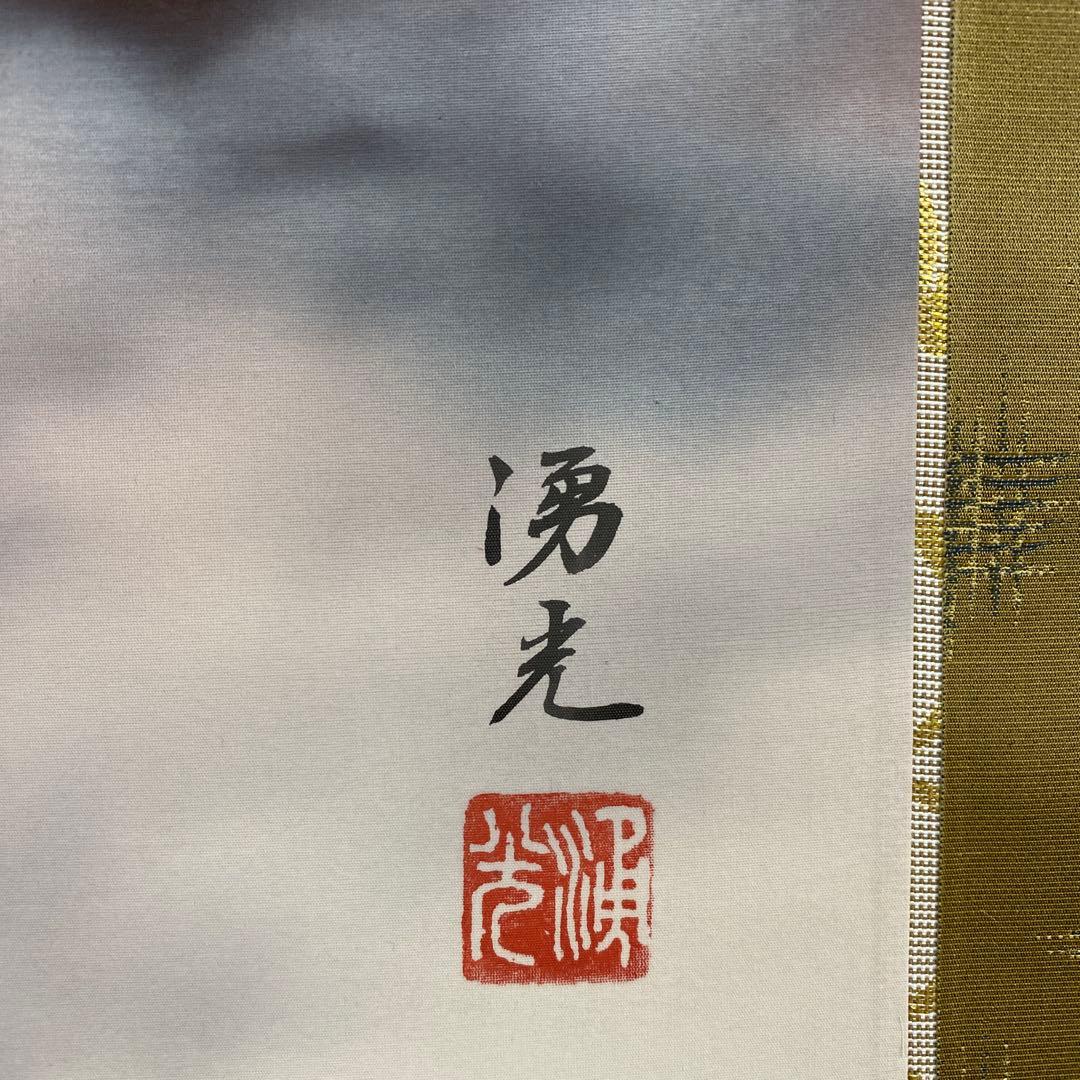 湧光
湧光